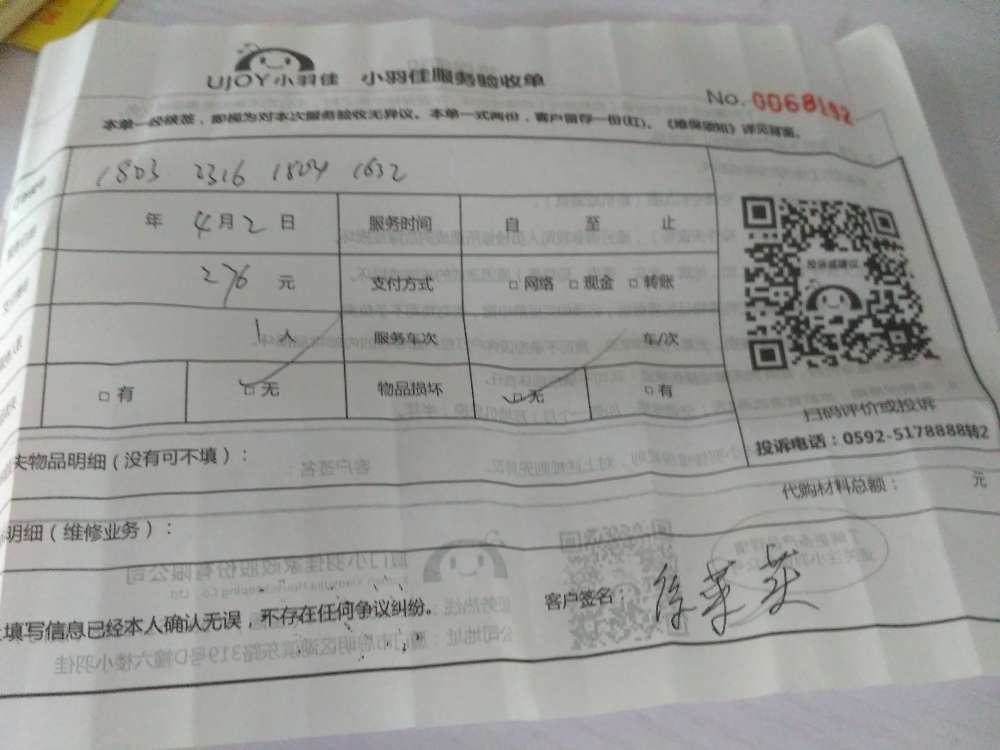 UJOY小羽佳 小羽佳服务验收单
No. 0068192
本单一经核签，即视为对本次服务验收无异议。本单一式两份，客户留存一份(红)。《维保须知》详见背面。
1803 2316 1804 1632
年 4月2日 服务时间 自 至 止
276 元 支付方式 □网络 □现金 □转账
1人 服务车次 车/次
□有 □无 物品损坏 □无 □有
投诉或建议
扫码评价或投诉
投诉电话：0592-5178888转2
物品明细（没有可不填）：
代购材料总额： 元
明细（维修业务）：
填写信息已经本人确认无误，不存在任何争议纠纷。
客户签名：